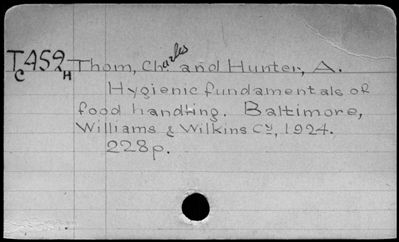 T459 Thom, Charles and Hunter, A.
C H
Hygienic fundamentals of
food handling. Baltimore,
Williams & Wilkins Cy, 1924.
228p.